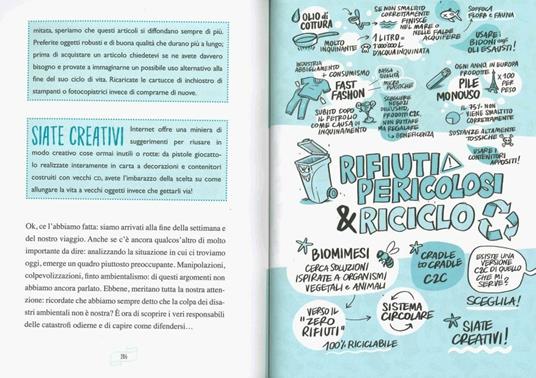 mitata, speriamo che questi articoli si diffondano sempre di più.
Preferite oggetti robusti e di buona qualità che durano più a lungo;
prima di acquistare un articolo chiedetevi se ne avete davvero
bisogno e provate a immaginarne un possibile uso alternativo alla
fine del suo ciclo di vita. Ricaricate le cartucce di inchiostro di
stampanti o fotocopiatrici invece di comprarne di nuove.
SIATE CREATIVI Internet offre una miniera di
suggerimenti per riusare in
modo creativo cose ormai inutili o rotte: da pistole giocatto-
lo realizzate interamente in carta a decorazioni e contenitori
costruiti con vecchi CD, avete l'imbarazzo della scelta su come
allungare la vita a vecchi oggetti invece che gettarli via!
Ok, ce l'abbiamo fatta: siamo arrivati alla fine della settimana e
del nostro viaggio. Anche se c'è ancora qualcos'altro di molto
importante da dire: analizzando la situazione in cui ci troviamo
oggi, emerge un quadro piuttosto preoccupante. Manipolazioni,
colpevolizzazioni, finto ambientalismo: di questi argomenti non
abbiamo ancora parlato. Ebbene, meritano tutta la nostra atten-
zione: ricordate che abbiamo sempre detto che la colpa dei disa-
stri ambientali non è nostra? È ora di scoprire i veri responsabili
delle catastrofi odierne e di capire come difendersi...
206
OLIO DI
COTTURA
MOLTO
INQUINANTE
SE NON SMALTITO
CORRETTAMENTE
FINISCE
NEL MARE O
NELLE FALDE
ACQUIFERE
1 LITRO =
1'000'000 L
D'ACQUA INQUINATA
SOFFOCA
FLORA E FAUNA
USARE I
BIDONI
OLI ESAUSTI!
INDUSTRIA
ABBIGLIAMENTO
+ CONSUMISMO
FAST
FASHION
BASSA
QUALITÀ
MICRO
PLASTICHE
SUBITO DOPO
IL PETROLIO
COME CAUSA DI
INQUINAMENTO
SCEGLIERE
NEGOZI
DELL'USATO,
PRODOTTI C2C
NON BUTTARE
MA REGALARE
BENEFICENZA
OGNI ANNO, IN EUROPA
PRODOTTE
X 100
PER PESO
PILE
MONOUSO
IL 75% NON
VIENE SMALTITO
CORRETTAMENTE
SOSTANZE ALTAMENTE
TOSSICHE
USARE I
CONTENITORI
APPOSITI!
RIFIUTI
PERICOLOSI
& RICICLO
BIOMIMESI
CERCA SOLUZIONI
ISPIRATE A ORGANISMI
VEGETALI E ANIMALI
CRADLE
TO CRADLE
C2C
ESISTE UNA
VERSIONE
C2C DI QUELLO
CHE MI
SERVE?
SCEGLILA!
VERSO IL
"ZERO
RIFIUTI"
SISTEMA
CIRCOLARE
100% RICICLABILE
SIATE
CREATIVI!